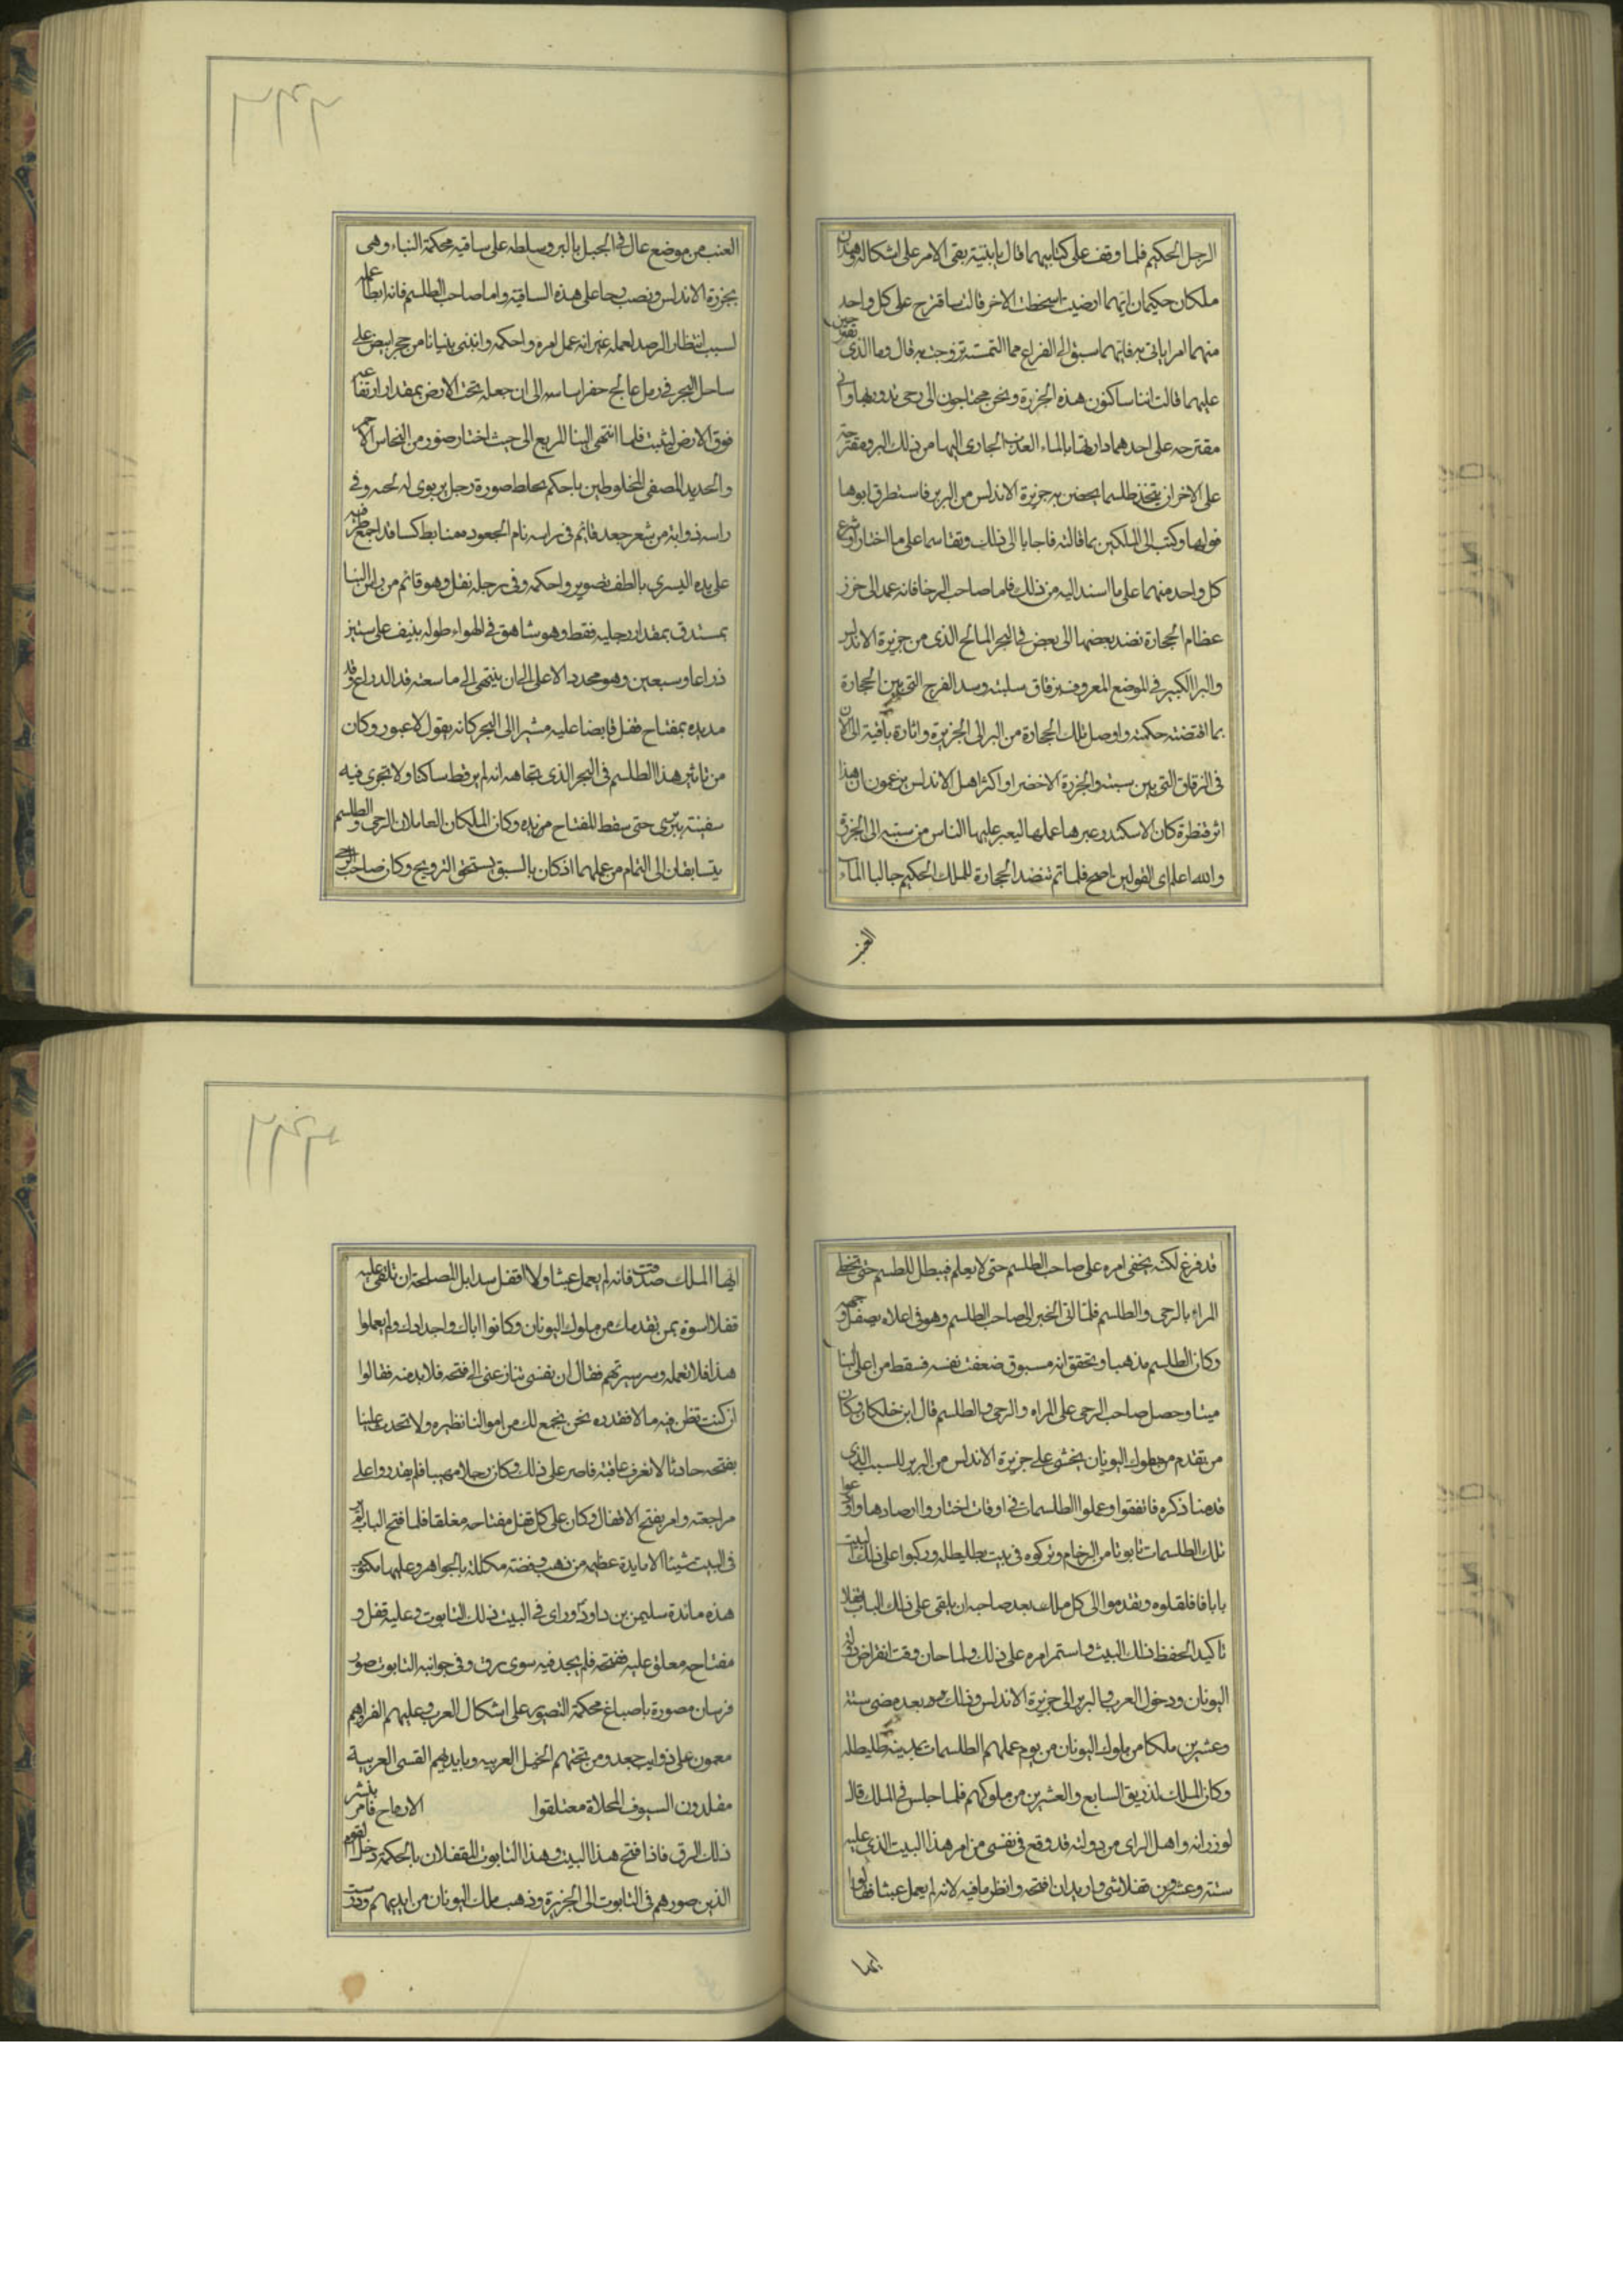 الرجل الحكيم فلما وقف على كتابيهما قال يا بنية بقى الامر على اشكاله وهذان
ملكان حكيمان ايهما ارضيت اسخطت الاخر قالت ساقترح على كل واحد
منهما امرا ياتى به فايهما سبق الى الفراغ مما التمست تزوجت به قال وما الذى تقترحين
عليهما قالت اننا ساكنون هذه الجزيرة ونحن محتاجون الى رحى تدور بها وانى
مقترحه على احدهما دارتها بالماء العذب الجارى اليها من ذلك البر ومقترحة
على الاخر ان يتخذ طلسما يحصن به جزيرة الاندلس من البربر فاستطرق ابوها
قولها وكتب الى الملكين بما قالته فاجابا الى ذلك وتقاسما على ما اختار اوشرع
كل واحد منهما على ما اسند اليه من ذلك فاما صاحب الرحا فانه عمد الى خرز
عظام الحجارة نضد بعضها الى بعض فى البحر المالح الذى من جزيرة الاندلس
والبر الكبير فى الموضع المعروف بزقاق سبته وسد الفرج التى بين الحجارة
بما اقتضته حكمته واوصل تلك الحجارة من البر الى الجزيرة واثارة باقية الى الان
فى الزقاق التى بين سبته والجزرة الاخضر او اكثر اهل الاندلس يزعمون ان هذا
اثر قنطرة كان الاسكندر عبرها عملها ليعبر عليها الناس من سبته الى الجزيرة
والله اعلم اى القولين اصح فلما تم تنضد الحجارة للملك الحكيم جالبا الماء
العذب
العذب من موضع عال فى الجبل بالبر وسلطه على ساقيه محكمة البناء وهى
بجزرة الاندلس ونصب رحا على هذه الساقية واما صاحب الطلسم فانه ابطا عمله
لسبب انتظار الرصد لعمله غير انه عمل امره واحكمه وابتنى بنيانا من حجر ابيض على
ساحل البحر فى رمل عالج حفر اساسه الى ان جعله تحت الارض بمقدار ارتفاعه
فوق الارض ليثبت فلما انتهى البنا المربع الى حيث اختار صور من النحاس الاحمر
والحديد المصفى المخلوطين باحكم خلط صورة رجل بربوى له لحيه وفى
راسه ذوابة من شعر جعد قائم فى راسه نام الجعوده متابط كسا قد اجمع طرفيه
على يده اليسرى بالطف تصوير واحكمه وفى رجله نعل وهو قائم من راس البنا
بمستدق بمقدار رجليه فقط وهو شاهق فى الهواء طوله ينيف على ستين
ذراعا وسبعين وهو محدد الاعلى الى ان ينتهى الى ما سعته قد الذراع وقد
مد يده بمفتاح قفل قابضا عليه مشيرا الى البحر كانه يقول لا عبور وكان
من تاثير هذا الطلسم فى البحر الذى تجاهه انه لم ير قط ساكنا ولا تجرى فيه
سفينة بربرى حتى سقط المفتاح من يده وكان الملكان العاملان الرحى والطلسم
يتسابقان الى التمام من عملهما اذ كان بالسبق يستحق التزويج وكان صاحب الرحى
قد فرغ لكنه يخفى امره على صاحب الطلسم حتى لا يعلم فيبطل الطلسم حتى تحظى
المراه بالرحى والطلسم فلما القى الخبر الى صاحب الطلسم وهو فى اعلاه يصقل وجهه
وكان الطلسم مذهبا وتحقق انه مسبوق ضعفت نفسه فسقط من اعلى البنا
ميتا وحصل صاحب الرحى على المراه والرحى والطلسم قال ابن خلكان وكان
من تقدم من ملوك اليونان يخشى على جزيرة الاندلس من البربر للسبب الذى
قدمنا ذكره فاتفقوا وعملوا الطلسمات فى اوقات اختاروا ارصادها واودعوا
تلك الطلسمات تابوتا من الرخام وتركوه فى بيت بطليطله وركبوا على ذلك البيت
بابا فاقفلوه وتقدموا الى كل ملك بعد صاحبه ان يلقى على ذلك الباب قفلا
تاكيدا لحفظ ذلك البيت واستمر امره على ذلك ولما حان وقت انقراض دولة
اليونان ودخول العرب والبربر الى جزيرة الاندلس وذلك بعد مضى ستة
وعشرين ملكا من ملوك اليونان من يوم عملهم الطلسمات بمدينة طليطله
وكان الملك لذريق السابع والعشرين من ملوكهم فلما جلس فى الملك قال
لوزرائه واهل الراى من دولته قد وقع فى نفسى من امر هذا البيت الذى عليه
ستة وعشرون قفلا شى واريد ان افتحه وانظر ما فيه لانه لم يعمل عبثا فقالوا
ايها
ايها الملك صدقت فانه لم يعمل عبثا ولا اقفل سدا بل المصلحة ان تلقى عليه
قفلا اسوة بمن تقدمك من ملوك اليونان وكانوا اباك واجدادك ولم يعملوا
هذا فلا تعمله وسر سيرتهم فقال ان نفسى تنازعنى الى فتحه فلا بد منه فقالوا
ان كنت تظن فيه مالا فقدره نحن نجمع لك من اموالنا نظيره ولا تحدث علينا
بفتحه حادثا لا نعرف عاقبته فاصر على ذلك وكان رجلا مهيبا فلم يقدروا على
مراجعته وامر بفتح الاقفال وكان على كل قفل مفتاحه مغلقا فلما فتح الباب لم ير
فى البيت شيئا الا مايدة عظيمه من ذهب وفضة مكللة بالجواهر وعليها مكتوب
هذه مائدة سليمن بن داود وراى فى البيت ذلك التابوت وعليه قفل و
مفتاحه معلق عليه ففتحه فلم يجد فيه سوى رق وفى جوانب التابوت صور
فرسان مصورة باصباغ محكمة التصوير على اشكال العرب وعليهم الفراء وهم
معمون على ذوايب جعد ومن تحتهم الخيل العربيه وبايديهم القسى العربية
مقلدون السيوف المحلاة معتلقوا الارماح فامر بنشر
ذلك الرق فاذا فتح هذا البيت وهذا التابوت المقفلان بالحكمة دخل القوم
الذين صورهم فى التابوت الى الجزيرة وذهب ملك اليونان من ايديهم ودرست